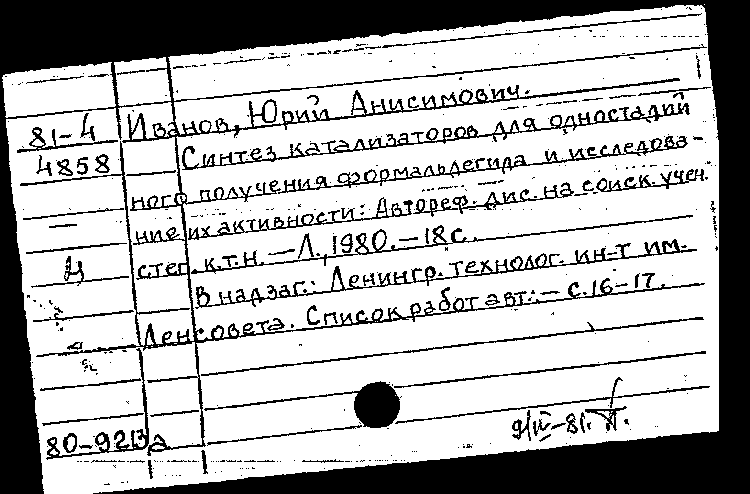 81-4 Иванов, Юрий Анисимович.
4858 Синтез катализаторов для одностадий
ного получения формальдегида и исследова-
— ние их активности: Автореф. дис. на соиск. учен.
степ. к.т.н. — Л., 1980. — 18 с.
В надзаг.: Ленингр. технолог. ин-т им.
Ленсовета. Список работ авт.: — с. 16-17.
9/IV-81.
80-9213а